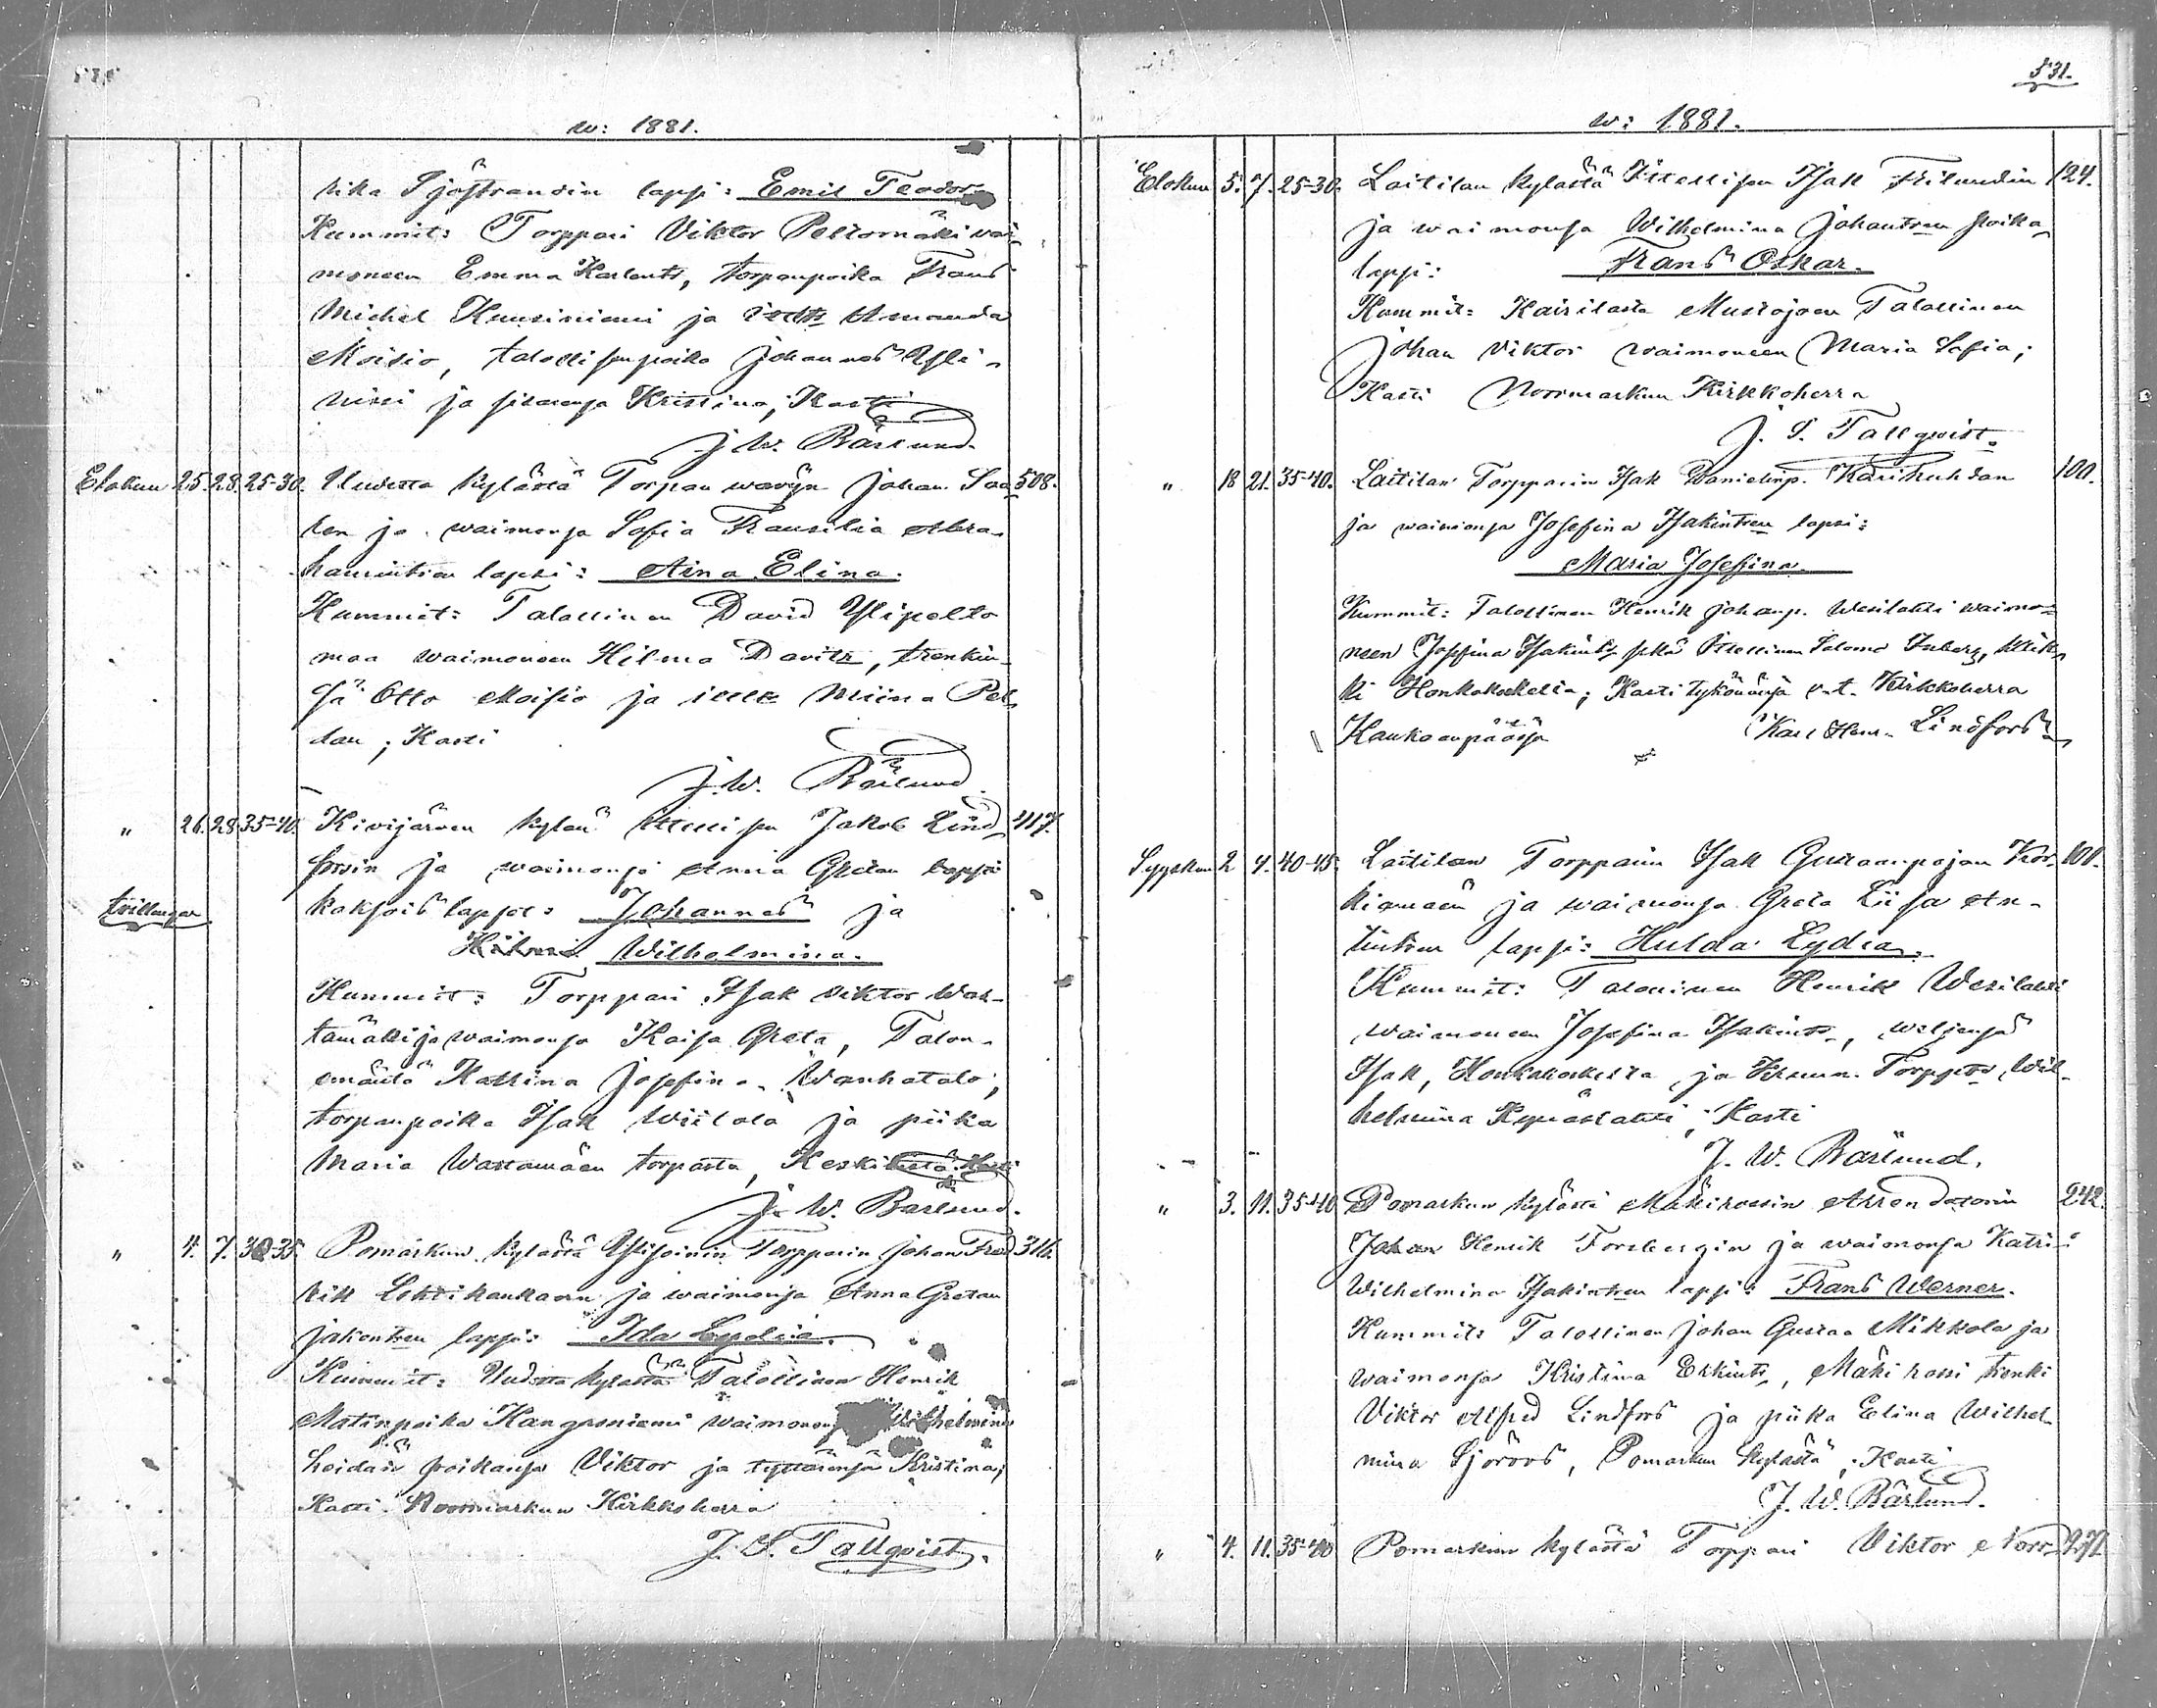 w: 1881.
rika Sjöstrandin lapsi: Emil Teodor
Kummit: Torppari Viktor Peltomäki wai-
moneen Emma Karlents, torpanpoika Frans
Michel Kuusiniemi ja Amanda
Moisio, talollisenpoika Johannes Yli-
nissi ja sisarensa Kristina; Kasti
J. W. Bärlund.
Elokuu 25. 28. 25-30. Uudesta kylästä Torpan wävyn Johan Saa- 508.
ren ja waimonsa Sofia Fransilia Abra-
hamintren lapsi: Aina Elina.
Kummit: Talollinen David Ylipelto
maa waimoneen Hilma Davitr, trenkin-
sä Otto Moisio ja Miina Pel-
dan; Kasti
J. W. Bärlund
" 26. 28. 35-40. Kivijärven kylän Itsellisen Jakob Lind- 417.
forsin ja waimonsa Anna Gretan lapsi
tvillingar kaksoislapset: Johannes ja
Wilhelmina.
Kummit: Torppari Isak Viktor Was-
tamäki ja waimonsa Kaisa Greta, Talon-
emäntä Katrina Josefina Wanhatalo,
torpanpoika Isak Wiilola ja piika
Maria Wastamäen torpasta, Kasti
J. W. Bärlund.
" 4. 7. 30-35. Pomarkun kylästä Ylisoinin Torpparin Johan Fred- 316.
rik Lehtikankaan ja waimonsa Anna Gretan
Jakontren lapsi: Ida Lydia.
Kummit: Uudesta kylästä Talollinen Henrik
Matinpoika Kangasniemi waimonensa Wilhelmina
heidän poikansa Viktor ja tyttärensä Kristina;
Kasti Noormarkun Kirkkoherra
J. S. Tallqvist.
531.
w: 1881.
Elokuu 5. 7. 25-30. Laitilan kylästä Itsellisen Isak Frilundin 124.
ja waimonsa Wilhelmina Johantren poika-
lapsi: Frans Oskar.
Kummit: Kairilasta Mustajoen Talollinen
Johan Viktor waimoneen Maria Sofia;
Kasti Noormarkun Kirkkoherra
J. S. Tallqvist.
" 18 21. 35-40. Laitilan Torpparin Isak Danielinp. Karikuhdan 100.
ja waimonsa Josefina Isakintren lapsi:
Maria Josefina.
Kummit: Talollinen Henrik Johanp. Wesilahti waimo-
neen Josefina Isakints. sekä Itsellinen Salomo Inberg,
Honkakoskelta; Kasti tykönänsä v.t. Kirkkoherra
Kankaanpäässä Karl Herm. Lindfors
Syyskuu 2 4. 40-45. Laitilan Torpparin Isak Gustaanpojan Kor- 101.
kiamäen ja waimonsa Greta Liisa An-
tintren lapsi: Hulda Lydia.
Kummit: Talollinen Henrik Wesilahti
waimoneen Josefina Isakints., weljensä
Isak, Honkakoskelta, ja Torppts. Wil-
helmina Kynäslahti; Kasti
J. W. Bärlund.
" 3. 11. 35-40 Pomarkun kylästä Mäkirossin Arrendatorin 242.
Johan Henrik Forsbergin ja waimonsa Katri-
Wilhelmina Isakintren lapsi: Frans Werner.
Kummit: Talollinen Johan Gustaa Mikkola ja
waimonsa Kristina Erkints., Mäkirossi trenki
Viktor Alfred Lindfors ja piika Elina Wilhel-
mina Sjöroos, Pomarkun kylästä; Kasti
J. W. Bärlund.
" 4. 11. 35-40 Pomarkun kylästä Torppari Viktor Norr-